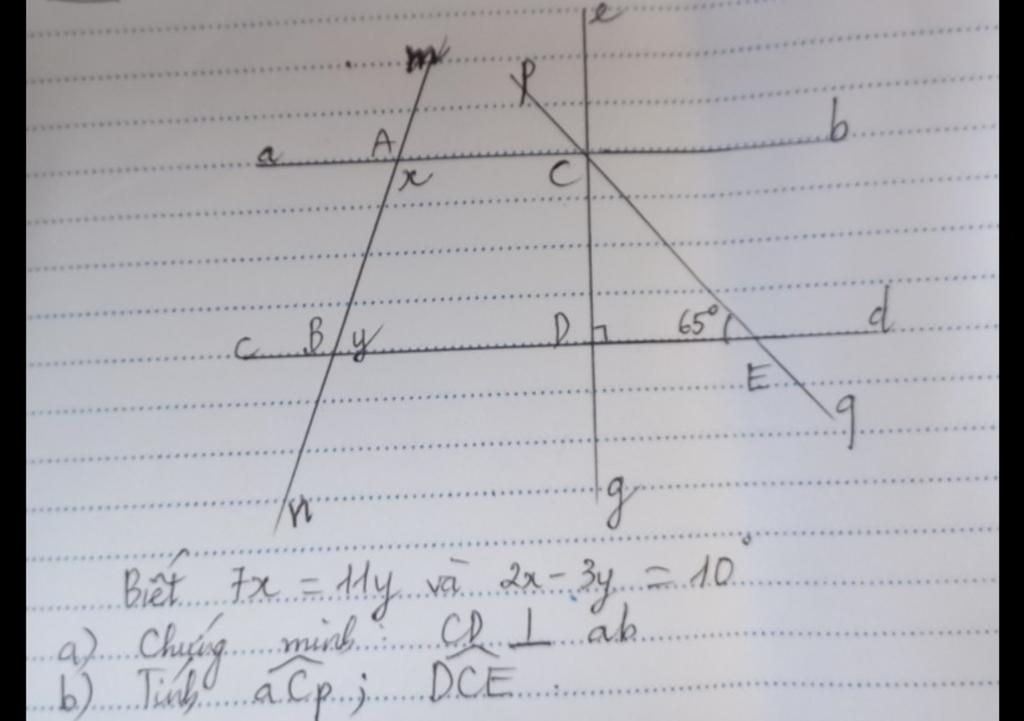 e
m
p
a A b
x C
c B y D 65° d
E
q
n g
Biết 7x = 11y và 2x - 3y = 10°
a) Chứng minh: CD ⊥ ab
b) Tính aCp; DCE.